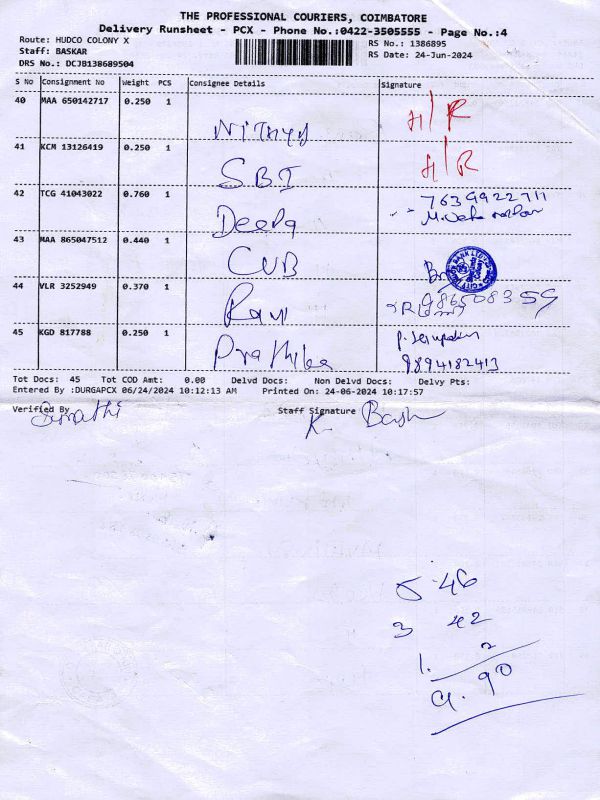 THE PROFESSIONAL COURIERS, COIMBATORE
Delivery Runsheet - PCX - Phone No.:0422-3505555 - Page No.:4
Route: HUDCO COLONY X
RS No.: 1386895
Staff: BASKAR
RS Date: 24-Jun-2024
DRS No.: DCJB138689504
S No Consignment No Weight PCS Consignee Details Signature
40 MAA 650142717 0.250 1 Nithya H/R
41 KCM 13126419 0.250 1 SBI H/R
42 TCG 41043022 0.760 1 Deepa 7639922711
43 MAA 865047512 0.440 1 CUB
44 VLR 3252949 0.370 1 Ravi
45 KGD 817788 0.250 1 Prathiba
9894182413
Tot Docs: 45 Tot COD Amt: 0.00 Delvd Docs: Non Delvd Docs: Delvy Pts:
Entered By :DURGAPCX 06/24/2024 10:12:13 AM Printed On: 24-06-2024 10:17:57
Verified By Staff Signature
K. Bash
5.46
3 42
1. 2
9.90